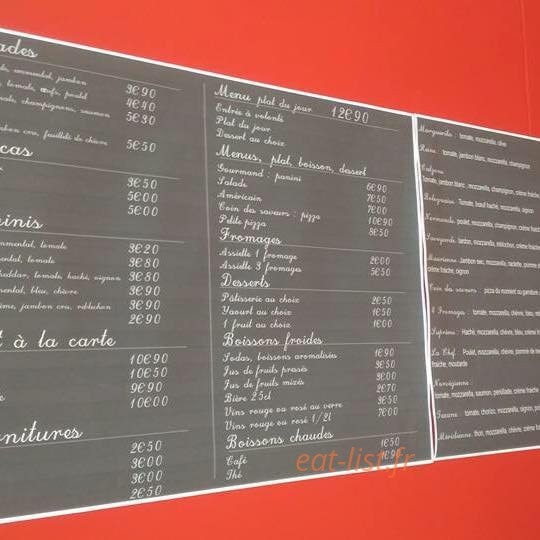 ades
emmental, jambon 3€90
tomate, œufs, poulet 4€40
champignons, saumon 5€30
cru, feuilleté de chèvre 5€50
cas
3€50
5€00
5€00
inis
emmental, tomate 3€20
emmental, tomate 3€80
cheddar, tomate, haché, oignon 3€80
emmental, bleu, chèvre 3€90
crème, jambon cru, reblochon 3€90
2€90
t à la carte
10€90
10€50
9€90
10€00
nitures
2€50
3€00
3€00
2€50
Menu plat du jour 12€90
Entrée à volonté
Plat du jour
Dessert au choix
Menus, plat, boisson, dessert
Gourmand : panini 6€90
Salade 7€50
Américain 7€00
Coin des saveurs : pizza 10€90
Petite pizza 8€50
Fromages
Assiette 1 fromage 2€00
Assiette 3 fromages 5€50
Desserts
Pâtisserie au choix 2€50
Yaourt au choix 1€50
1 fruit au choix 1€00
Boissons froides
Sodas, boissons aromatisées 1€90
Jus de fruits pressés 3€50
Jus de fruits mixés 3€00
Bière 25cl 2€70
Vins rouge ou rosé au verre 3€50
Vins rouge ou rosé 1/2l 7€00
Boissons chaudes
Café 1€50
Thé 1€90
Marguerite : tomate, mozzarella, olive
Reine : tomate, jambon blanc, mozzarella, champignon
Calzone
Tomate, jambon blanc, mozzarella, champignon, crème fraîche
Bolognaise : Tomate, bœuf haché, mozzarella, oignon
Normande : poulet, mozzarella, champignon, crème
Savoyarde : lardon, mozzarella, reblochon, crème
Mauricienne : Jambon sec, mozzarella, raclette, pomme
crème fraîche, oignon
Coin des saveurs : pizza du moment ou garniture
Fromages : tomate, mozzarella, chèvre, bleu
Suprême : Haché, mozzarella, chèvre, bleu, crème
La Chef : Poulet, mozzarella, chèvre, pomme de
fraîche, moutarde
Norvégienne :
tomate, mozzarella, saumon, persillade, crème
Texane : tomate, chorizo, mozzarella, oignon
Méridienne : thon, mozzarella, chèvre, crème
eat-list.fr